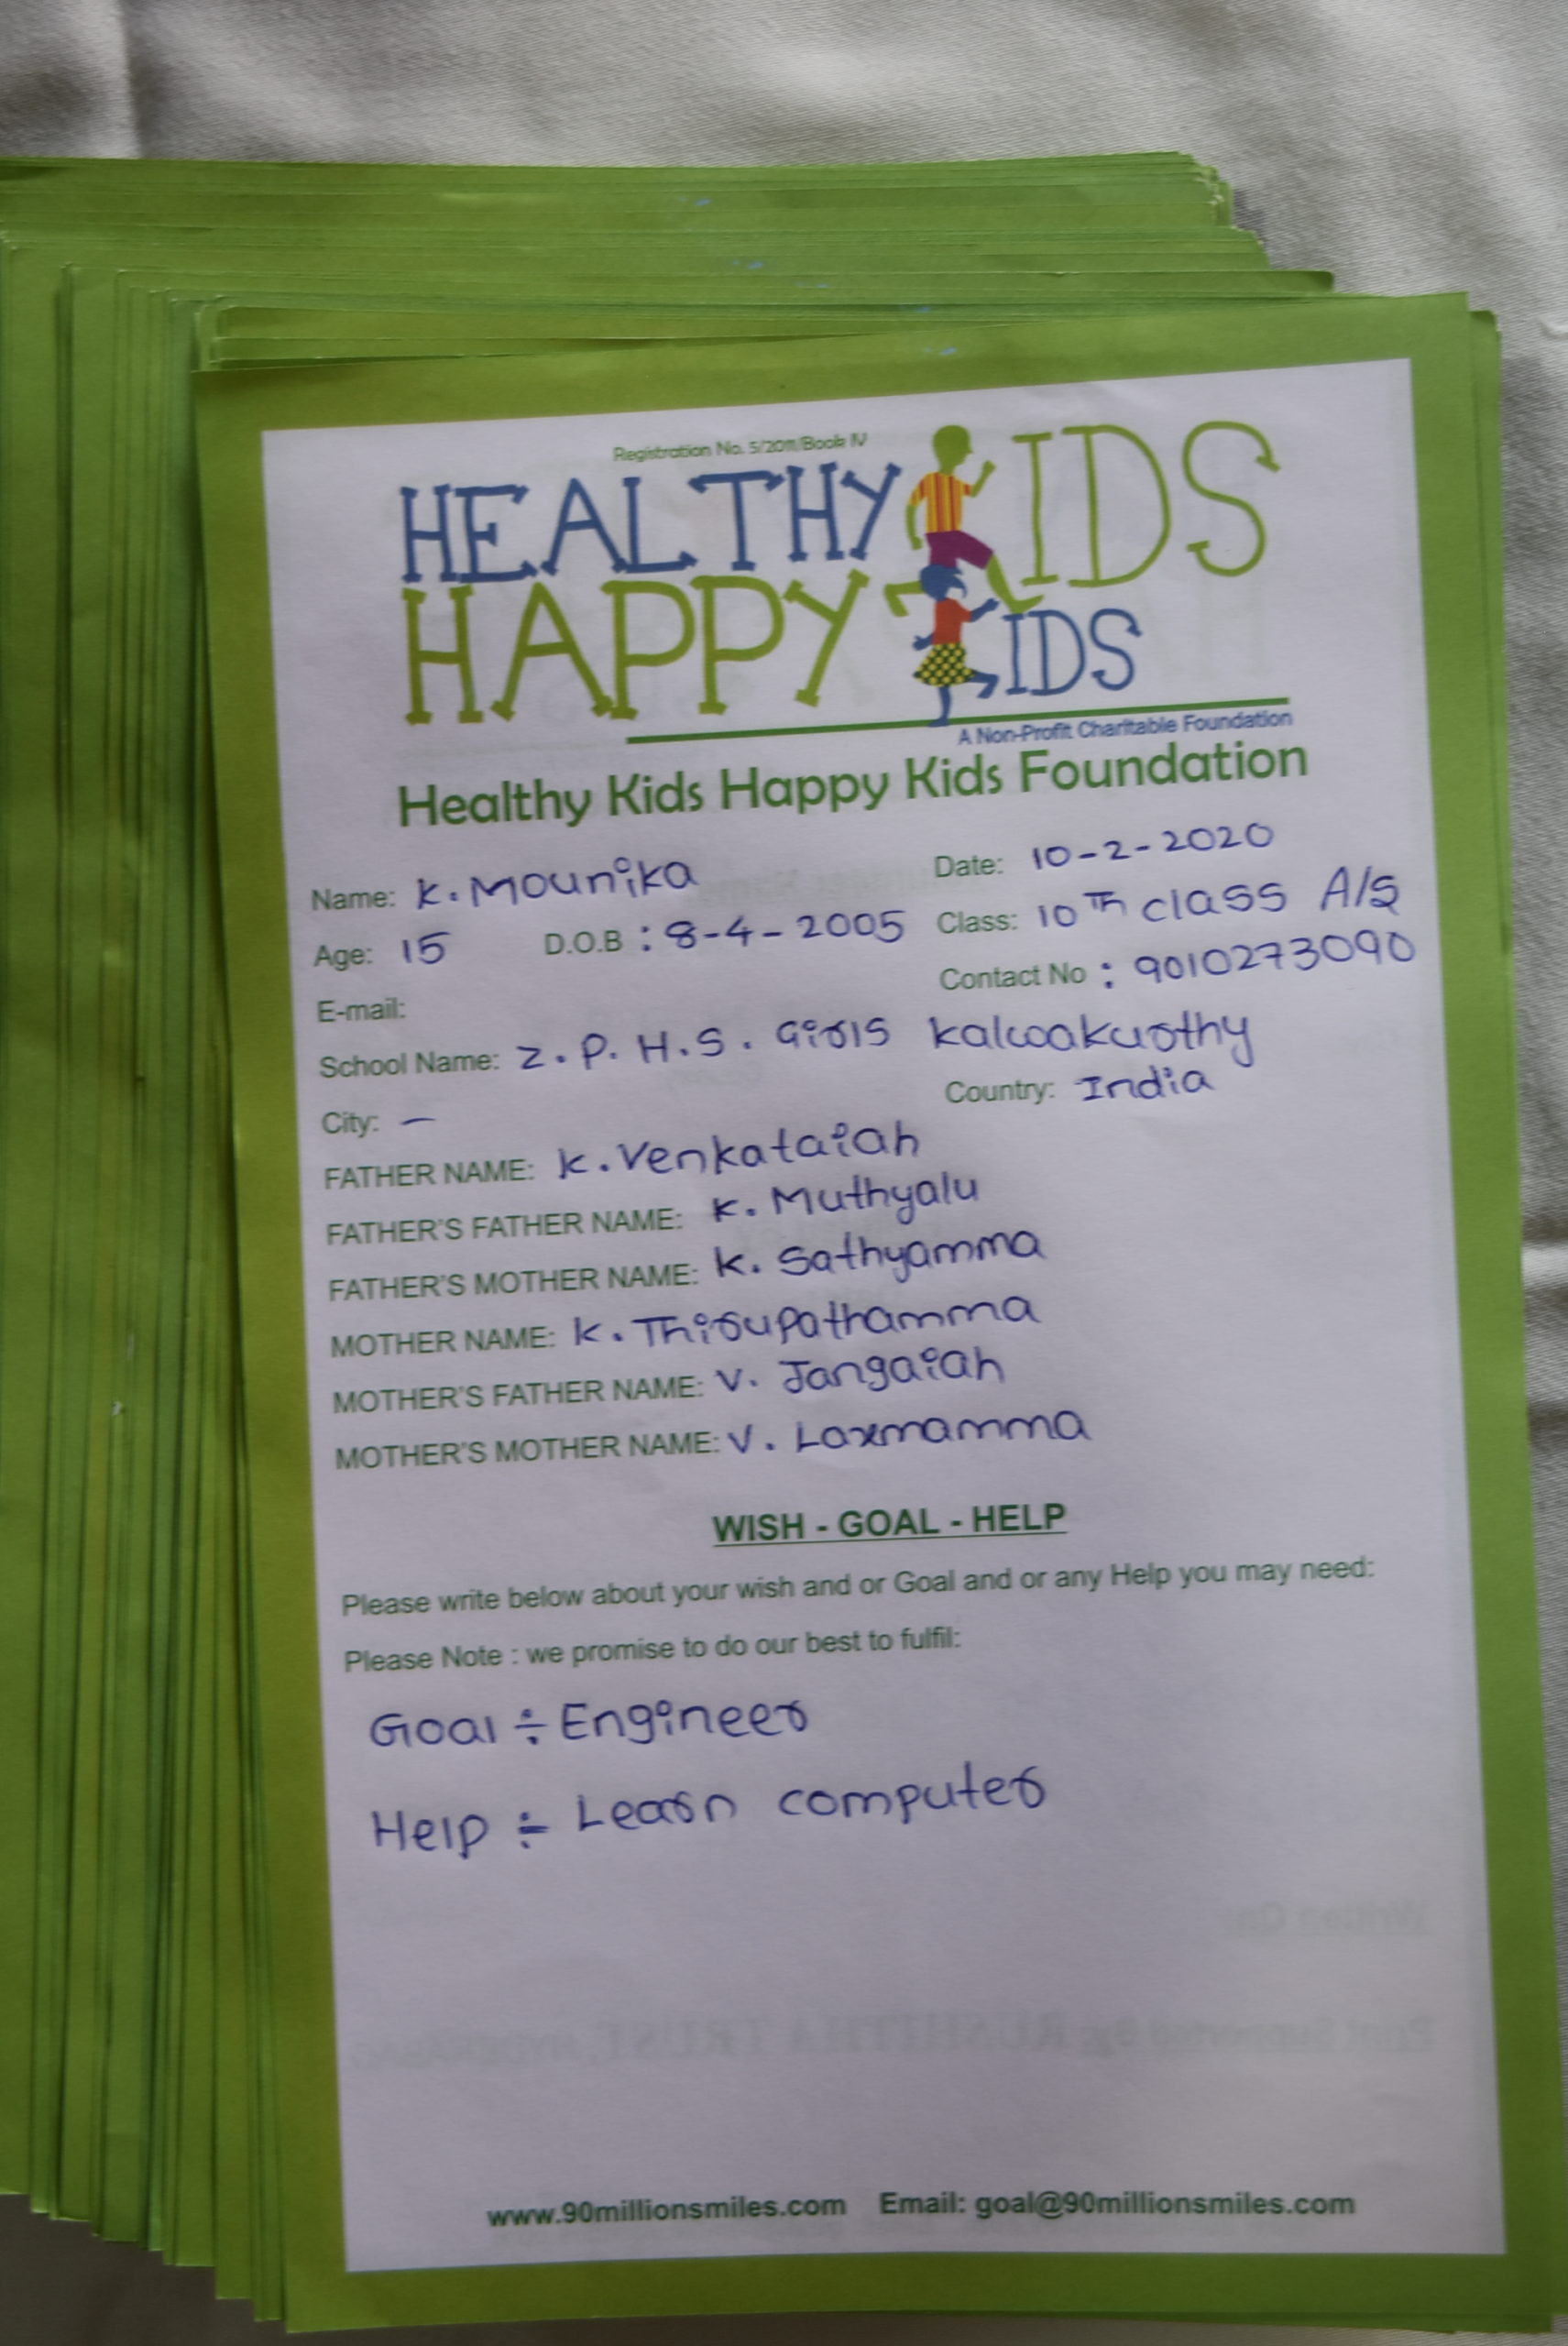 Registration No. 5/2011/Book IV
HEALTHY KIDS
HAPPY KIDS
A Non-Profit Charitable Foundation
Healthy Kids Happy Kids Foundation
Name: K. Mounika Date: 10-2-2020
Age: 15 D.O.B : 8-4-2005 Class: 10th class A/S
E-mail: Contact No : 9010273090
School Name: Z. P. H.S. Girls kalwakurthy
City: — Country: India
FATHER NAME: K. Venkataiah
FATHER'S FATHER NAME: K. Muthyalu
FATHER'S MOTHER NAME: K. Sathyamma
MOTHER NAME: K. Thirupathamma
MOTHER'S FATHER NAME: V. Jangaiah
MOTHER'S MOTHER NAME: V. Laxmamma
WISH - GOAL - HELP
Please write below about your wish and or Goal and or any Help you may need:
Please Note : we promise to do our best to fulfil:
Goal ÷ Engineer
Help ÷ Learn computer
www.90millionsmiles.com Email: goal@90millionsmiles.com